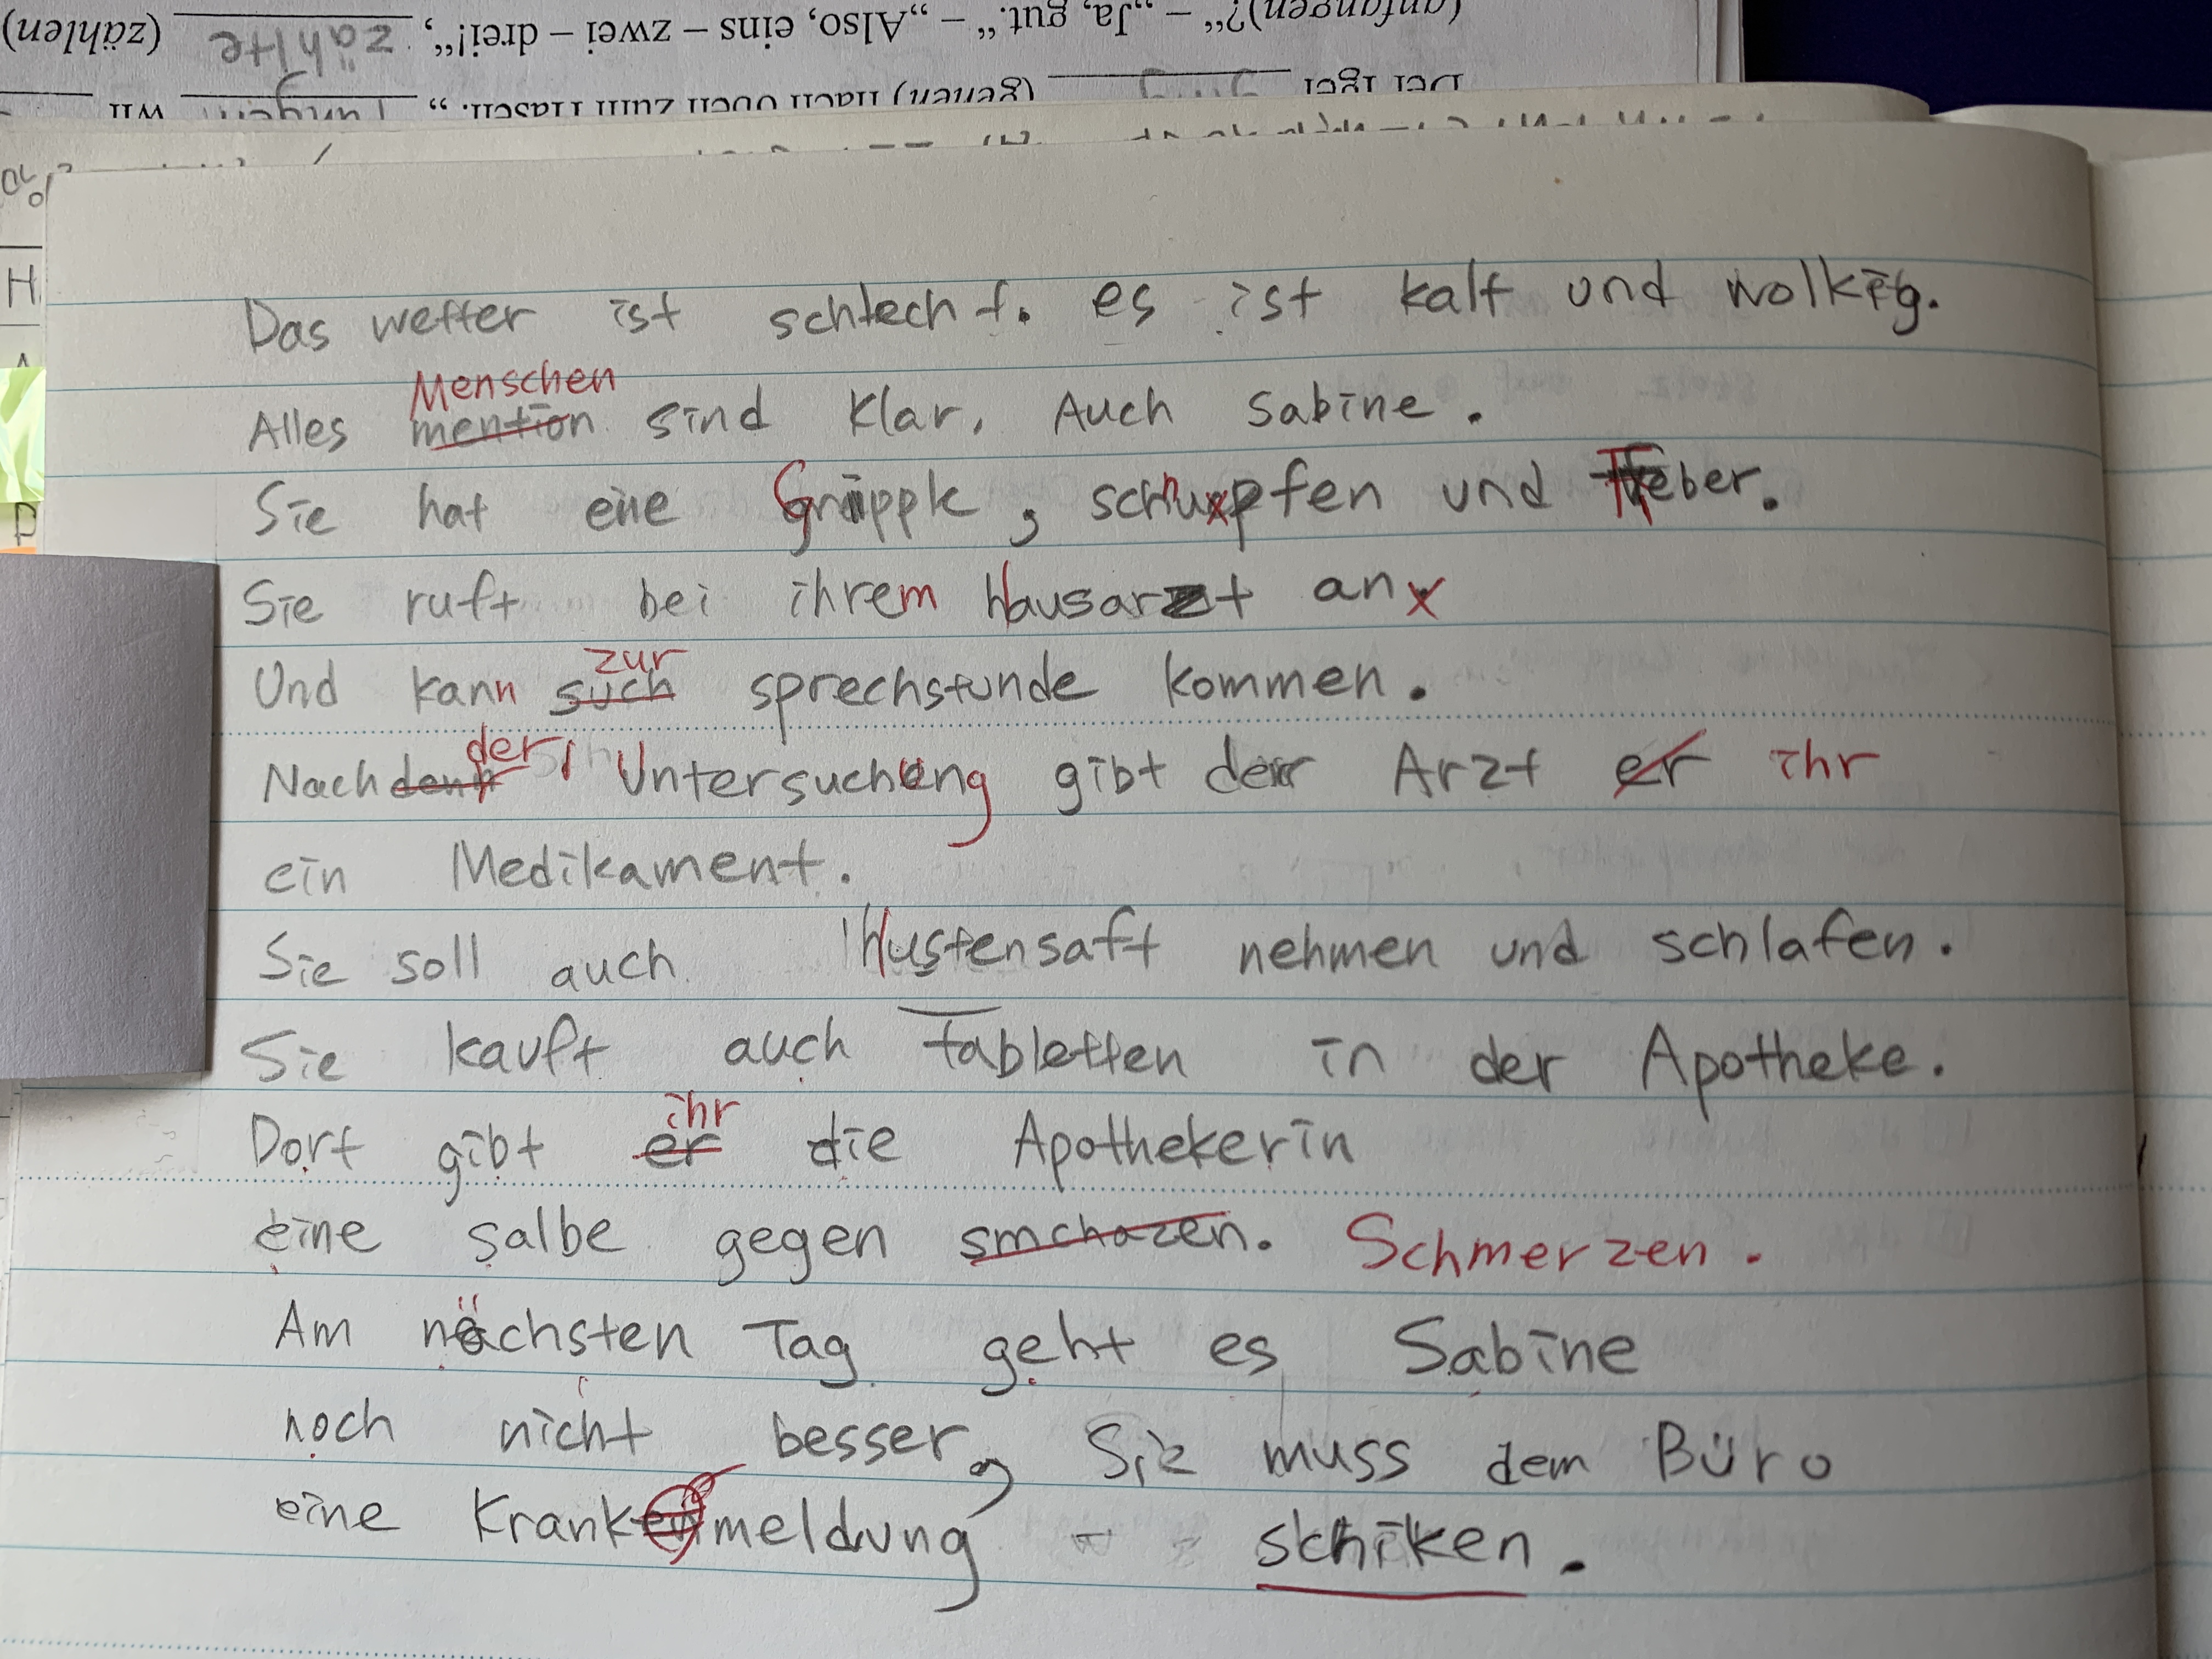 (anfangen)?“ – „Ja, gut.“ – „Also, eins – zwei – drei!“, zählte (zählen)
Der Igel ging (gehen) nach oben zum Hasen. „ Fangen wir
Das wetter ist schlecht. es ist kalt und wolkig.
Menschen
Alles mention sind klar. Auch Sabine.
Sie hat eine Grippe, schnupfen und Fieber.
Sie ruft bei ihrem Hausarzt an
zur
Und kann such sprechstunde kommen.
der
Nach Untersuchung gibt der Arzt er ihr
ein Medikament.
Sie soll auch Hustensaft nehmen und schlafen.
Sie kauft auch Tabletten in der Apotheke.
ihr
Dort gibt er die Apothekerin
eine salbe gegen smchazen. Schmerzen.
Am nächsten Tag geht es Sabine
noch nicht besser, Sie muss dem Büro
eine Krankenmeldung schiken.